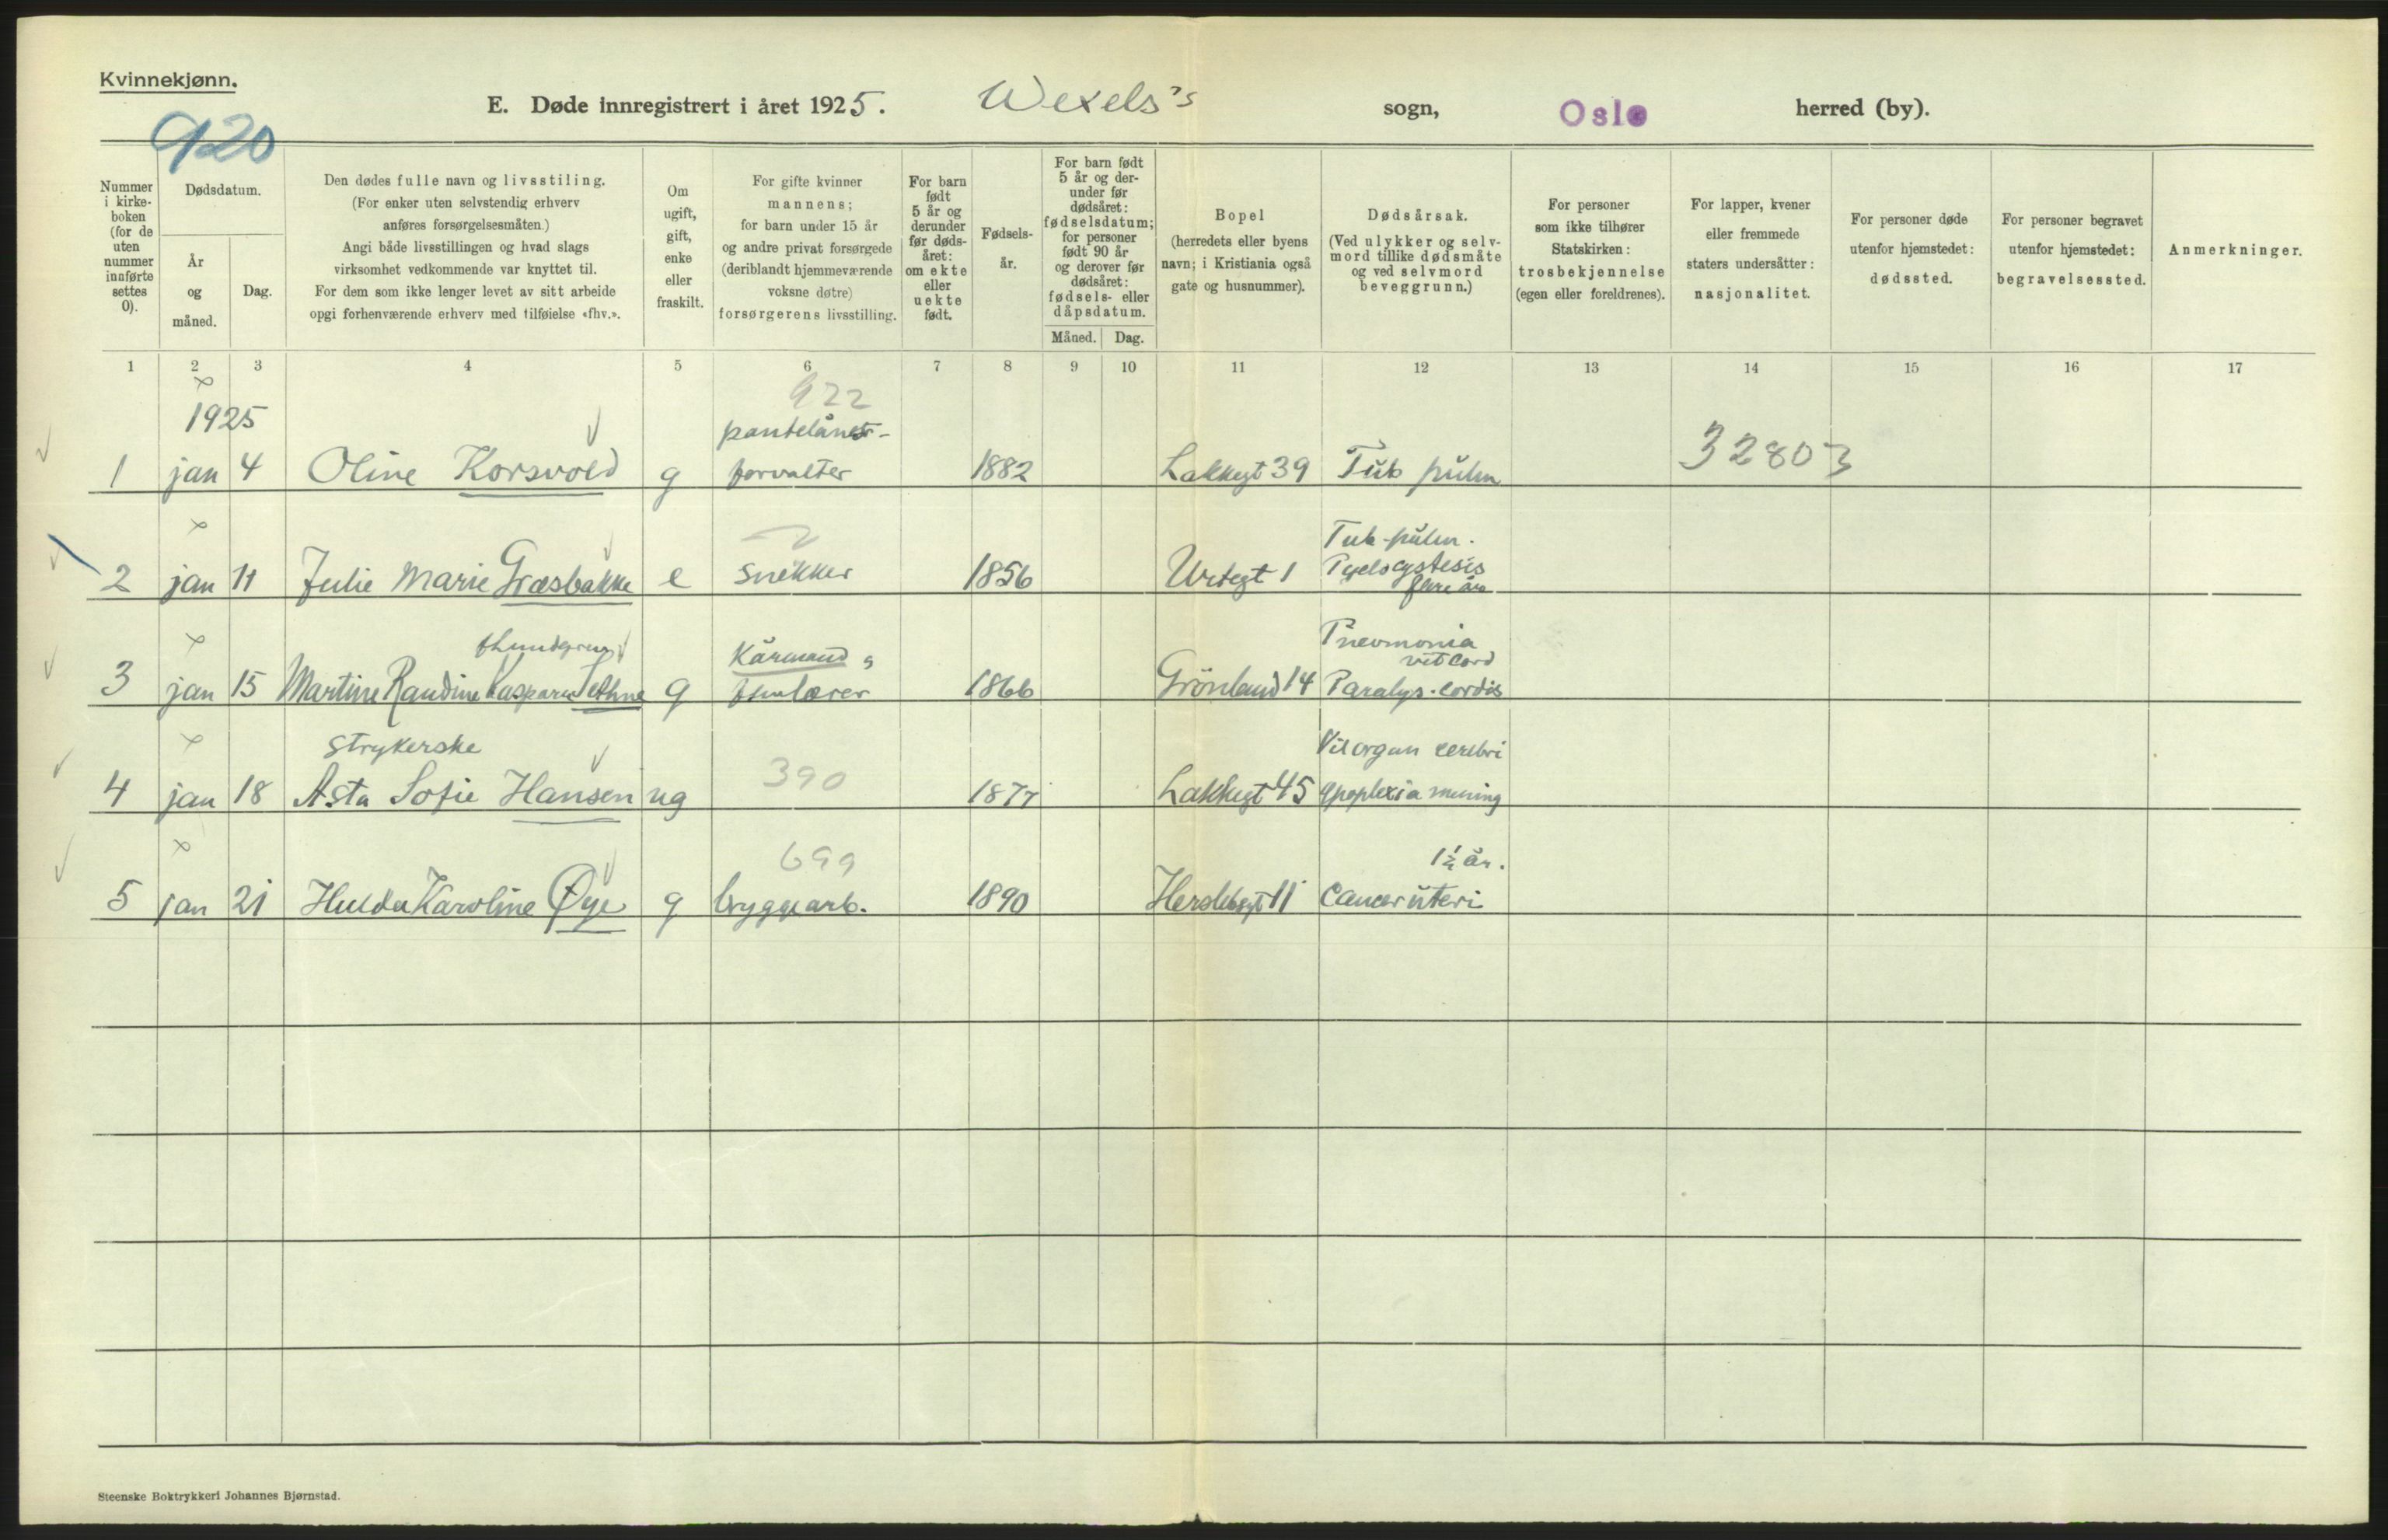 Kvinnekjønn.
E. Døde innregistrert i året 1925. Wexels's sogn, Oslo herred (by).
920
Nummer i kirke- boken (for de uten nummer innførte settes 0).
Dødsdatum.
År og måned.
Dag.
Den dødes fulle navn og livsstiling.
(For enker uten selvstendig erhverv
anføres forsørgelsesmåten.)
Angi både livsstillingen og hvad slags
virksomhet vedkommende var knyttet til.
For dem som ikke lenger levet av sitt arbeide
opgi forhenværende erhverv med tilføielse «fhv.».
Om
ugift,
gift,
enke
eller
fraskilt.
For gifte kvinner
mannens;
for barn under 15 år
og andre privat forsørgede
(deriblandt hjemmeværende
voksne døtre)
forsørgerens livsstilling.
For barn
født
5 år og
derunder
før døds-
året:
om ekte
eller
uekte
født.
Fødsels-
år.
For barn født
5 år og der-
under før
dødsåret:
fødselsdatum;
for personer
født 90 år
og derover før
dødsåret:
fødsels- eller
dåpsdatum.
Måned. Dag.
Bopel
(herredets eller byens
navn; i Kristiania også
gate og husnummer).
Dødsårsak.
(Ved ulykker og selv-
mord tillike dødsmåte
og ved selvmord
beveggrunn.)
For personer
som ikke tilhører
Statskirken:
trosbekjennelse
(egen eller foreldrenes).
For lapper, kvener
eller fremmede
staters undersåtter:
nasjonalitet.
For personer døde
utenfor hjemstedet:
dødssted.
For personer begravet
utenfor hjemstedet:
begravelsessted.
Anmerkninger.
1 2 3 4 5 6 7 8 9 10 11 12 13 14 15 16 17
1925
922
pantelåner-
1 jan 4 Oline Korsvold g forvalter 1882 Lakkegt 39 Tub pulm 32803
Tub-pulm.
2 jan 11 Julie Marie Græsbakke e snekker 1856 Urtegt 1
Kärmand
Pneumonia
vit cord
3 jan 15 Martine Randine g 1866 Grönland 14 Paralys. cordis
strykerske
390
Vit organ cerebri
4 jan 18 Asta Sofie Hansen ug 1877 Lakkegt 45 apoplexia mening
699
1½ år.
5 jan 21 Hulda Karoline Øye g byggearb. 1890 Herslebsgt 11 Cancer uteri
Steenske Boktrykkeri Johannes Bjørnstad.